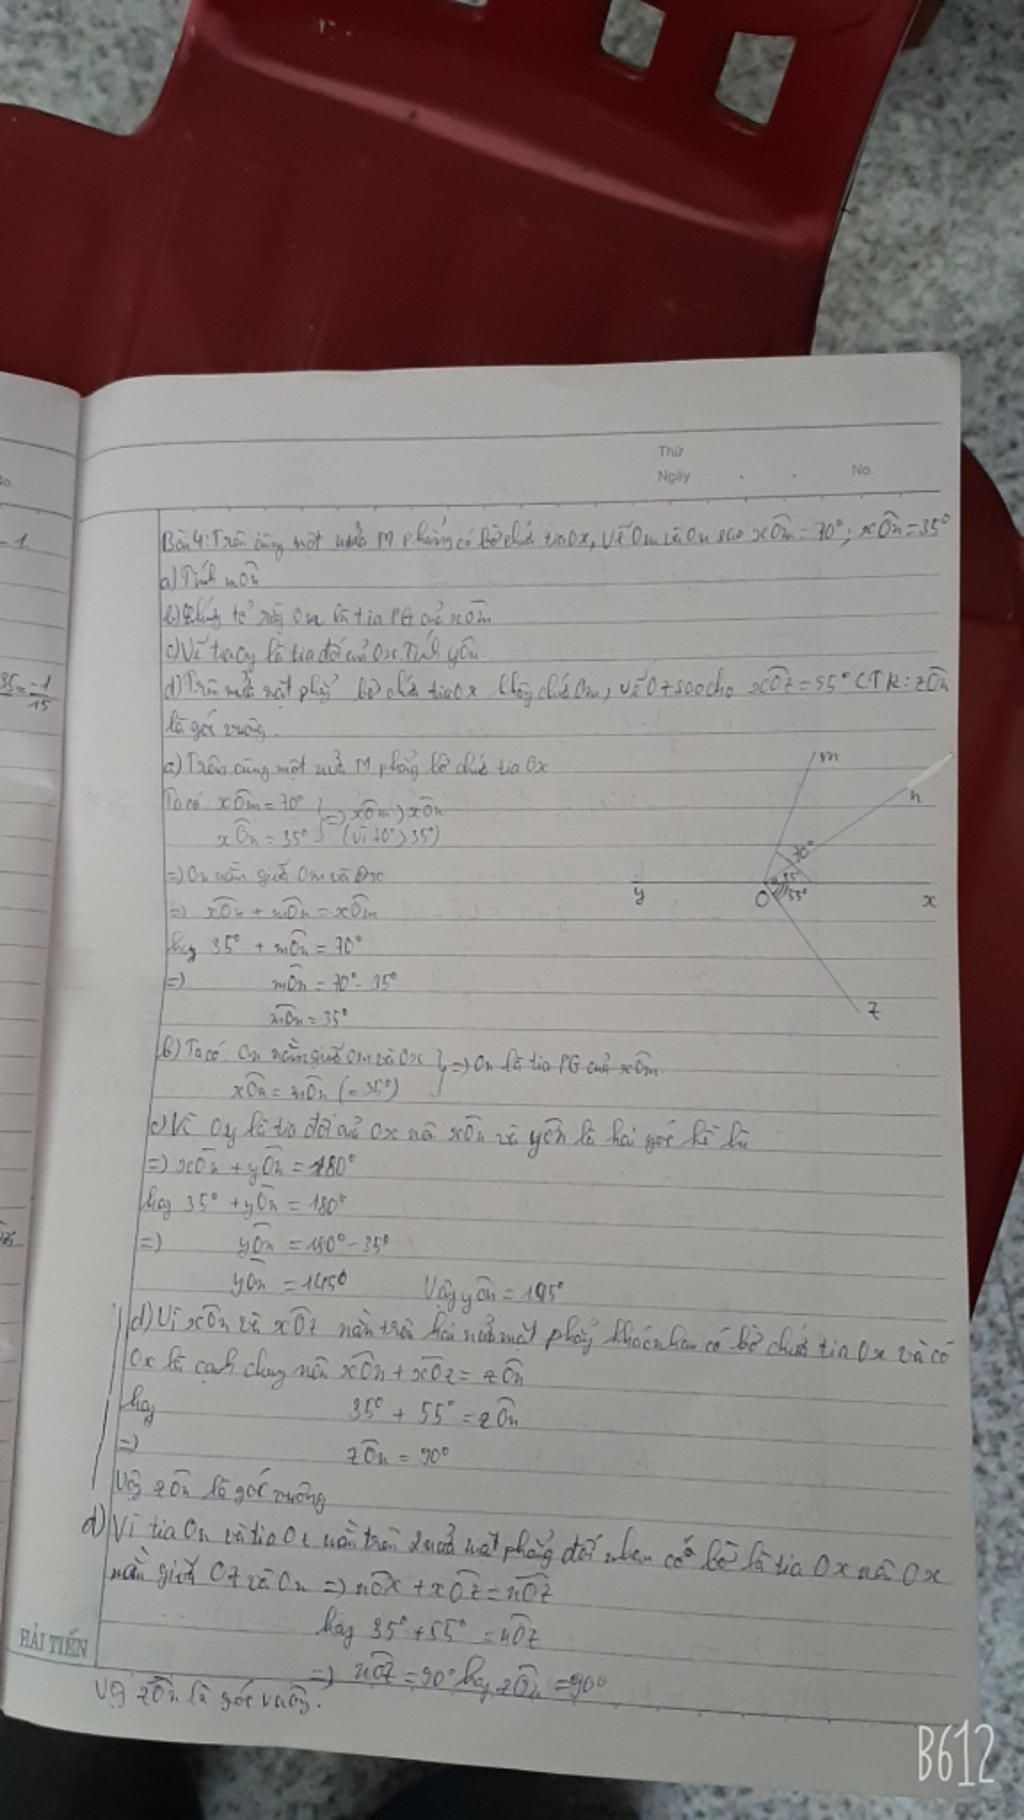 No.
Thứ
Ngày
No.
= 1.
35 = -1/15
Bài 4: Trên cùng một nửa M phẳng có bờ chứa tia Ox, vẽ Om và On sao xOm = 70°; xOn = 35°
a) Tính mOn
b) Chứng tỏ rằng On là tia PG của xOm
c) Vẽ tia Oy là tia đối của Ox. Tính yOn.
d) Trên nửa mặt phẳng bờ chứa tia Ox không chứa Om, vẽ Oz sao cho xOz = 55° CTR: zOn
là góc vuông.
a) Trên cùng một nửa M phẳng bờ chứa tia Ox
Ta có: xOm = 70° } => xOm > xOn
xOn = 35° (vì 70° > 35°)
=> On nằm giữa Om và Ox
=> xOn + mOn = xOm
hay 35° + mOn = 70°
=> mOn = 70° - 35°
mOn = 35°
m
n
70°
35°
55°
y
O
x
z
b) Ta có: On nằm giữa Om và Ox } => On là tia PG của xOm
xOn = mOn (= 35°)
c) Vì Oy là tia đối của Ox nên xOn và yOn là hai góc kề bù
=> xOn + yOn = 180°
hay 35° + yOn = 180°
=> yOn = 180° - 35°
yOn = 145° Vậy yOn = 145°
d) Vì xOn và xOz nằm trên hai nửa mặt phẳng khác nhau có bờ chứa tia Ox và có
Ox là cạnh chung nên xOn + xOz = zOn
hay 35° + 55° = zOn
=> zOn = 90°
Vậy zOn là góc vuông
d) Vì tia On và tia Oz nằm trên 2 nửa mặt phẳng đối nhau có bờ là tia Ox nên Ox
nằm giữa Oz và On => nOx + xOz = nOz
hay 35° + 55° = nOz
=> nOz = 90° hay zOn = 90°
Vậy zOn là góc vuông.
HẢI TIẾN
B612